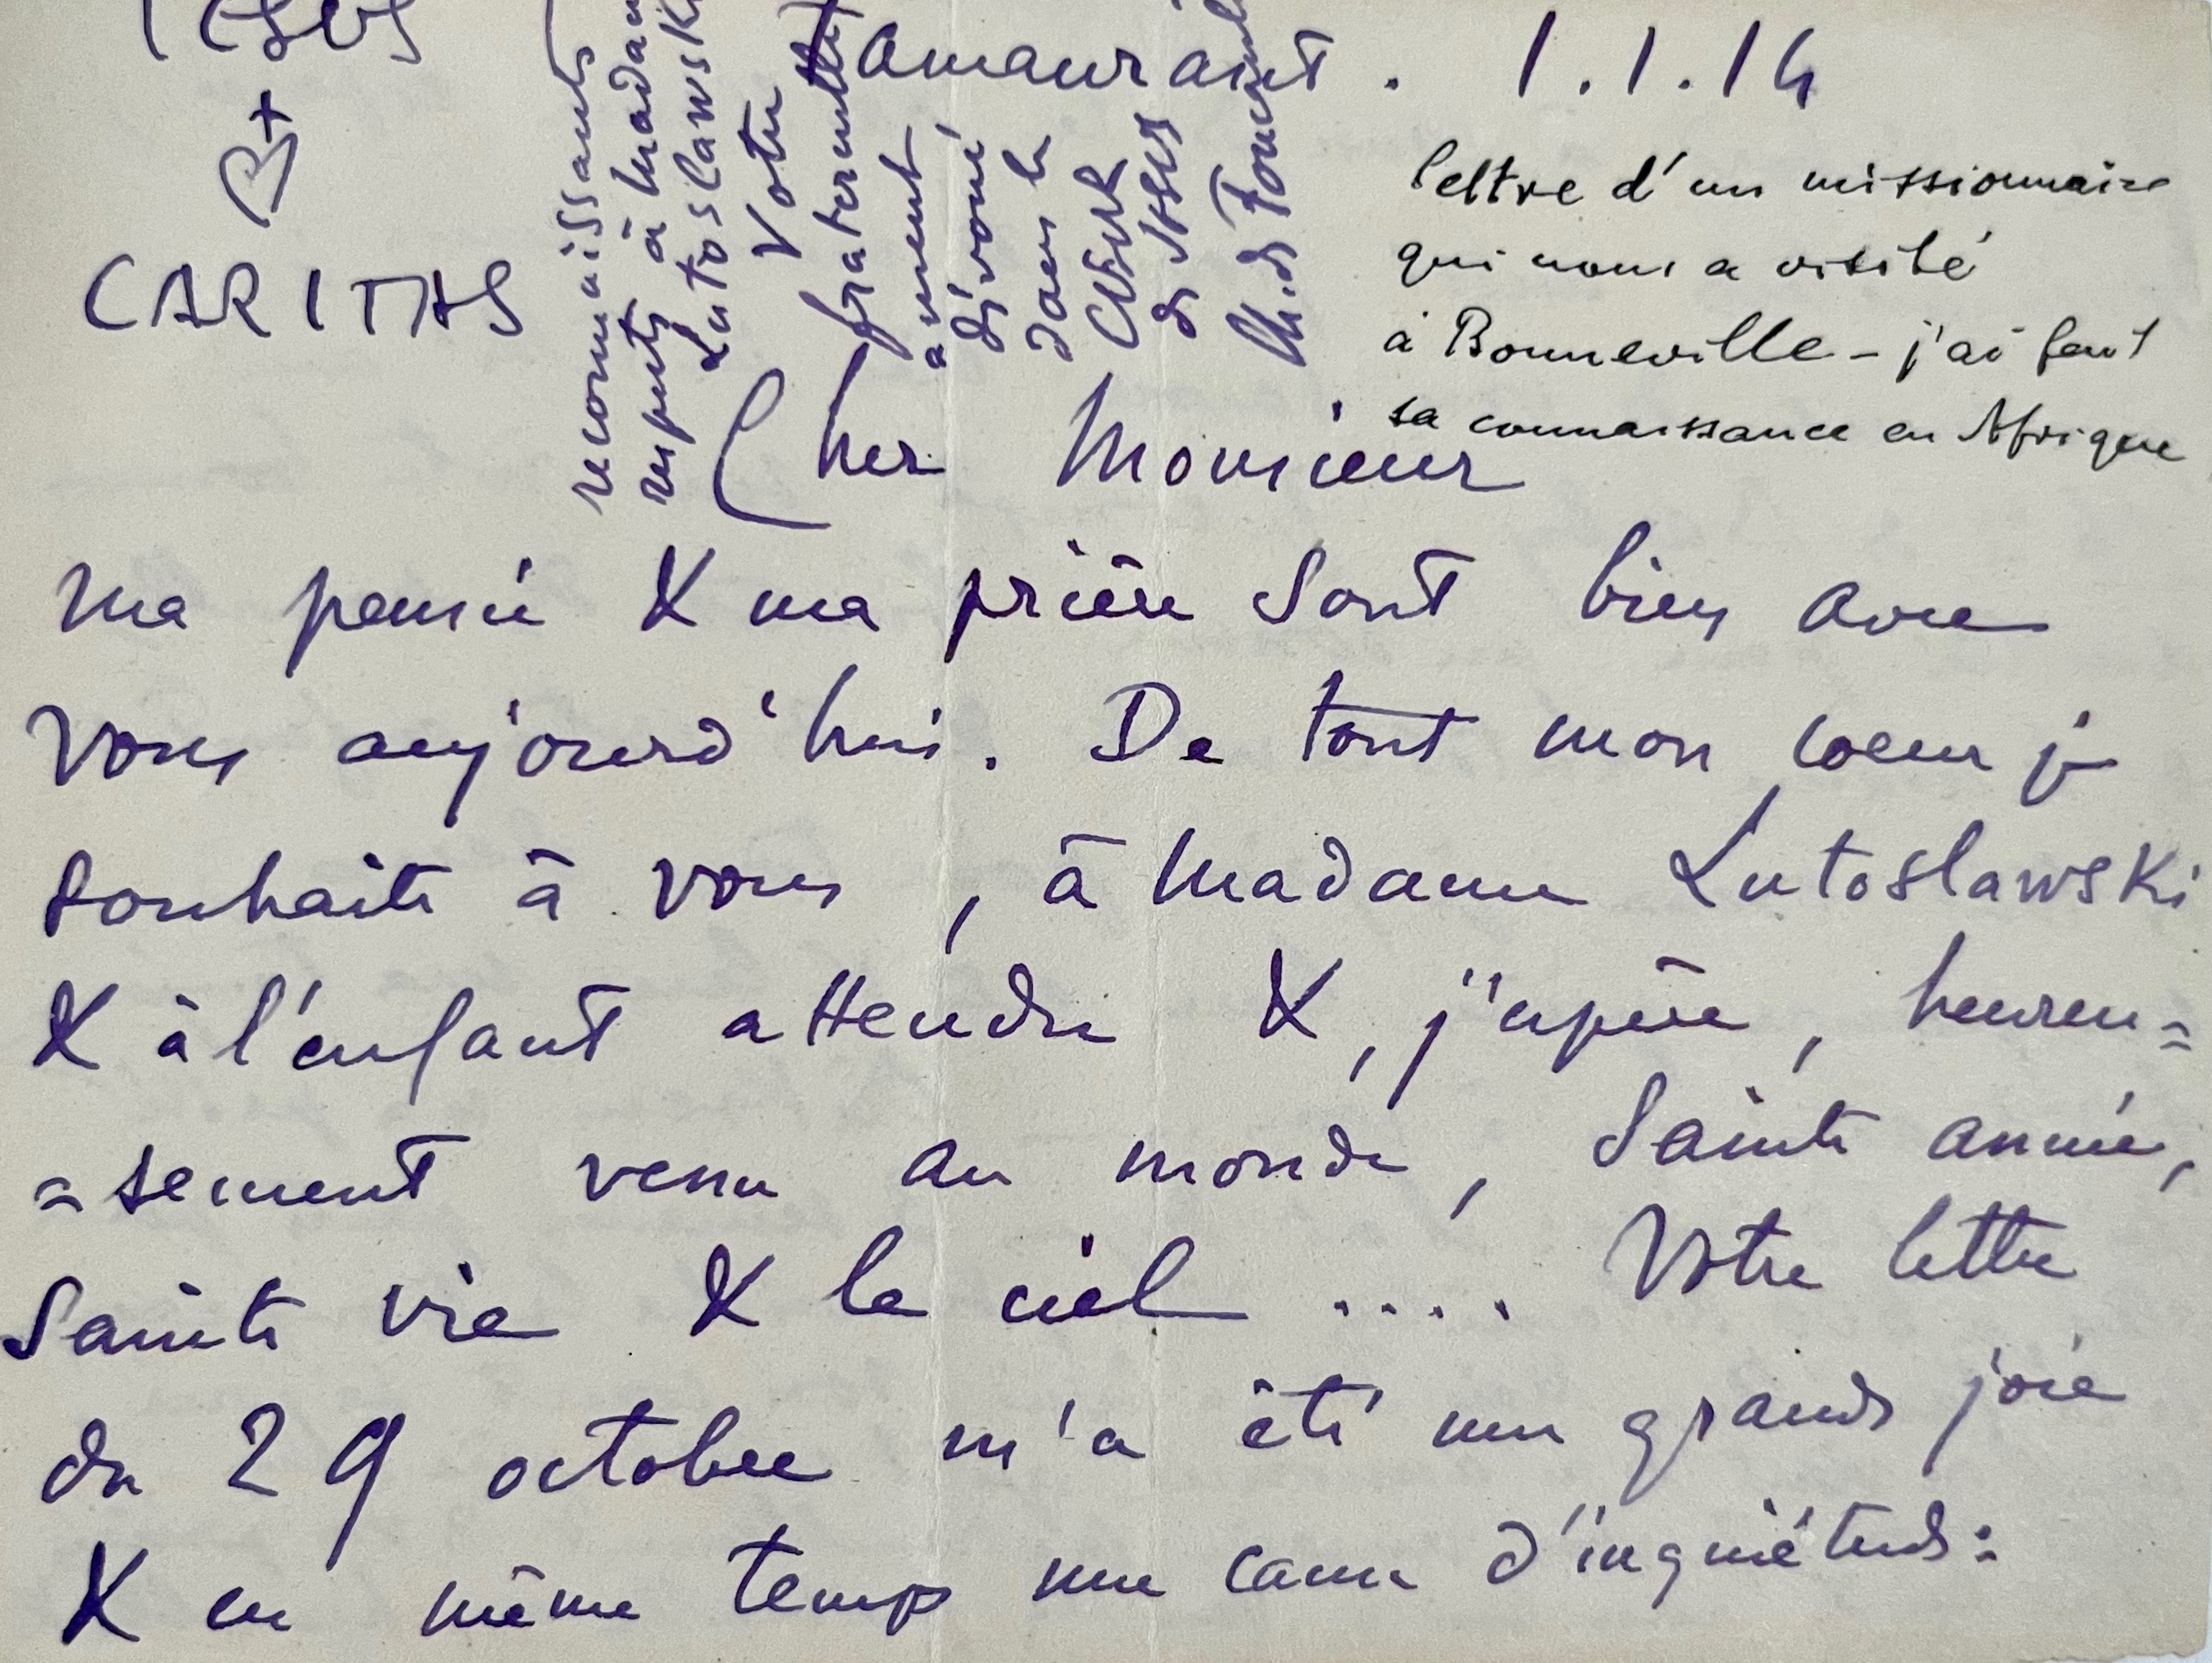 JESUS
CARITAS
Tamanrasset. 1.1.14
lettre d'un missionnaire
qui nous a visité
à Bonneville - j'ai fait
sa connaissance en Afrique
reconnaissants
respects à Madame
Lutoslawski
Votre
fraternelle
ment
dévoué
dans le
CŒUR
de JESUS
Ch. de Foucauld
Cher Monsieur
ma pensée & ma prière sont bien avec
vous aujourd'hui. De tout mon coeur je
souhaite à vous, à Madame Lutoslawski
& à l'enfant attendu &, j'espère, heureu=
=sement venu au monde, sainte année,
sainte vie & le ciel .... Votre lettre
du 29 octobre m'a été une grande joie
& en même temps une cause d'inquiétude: